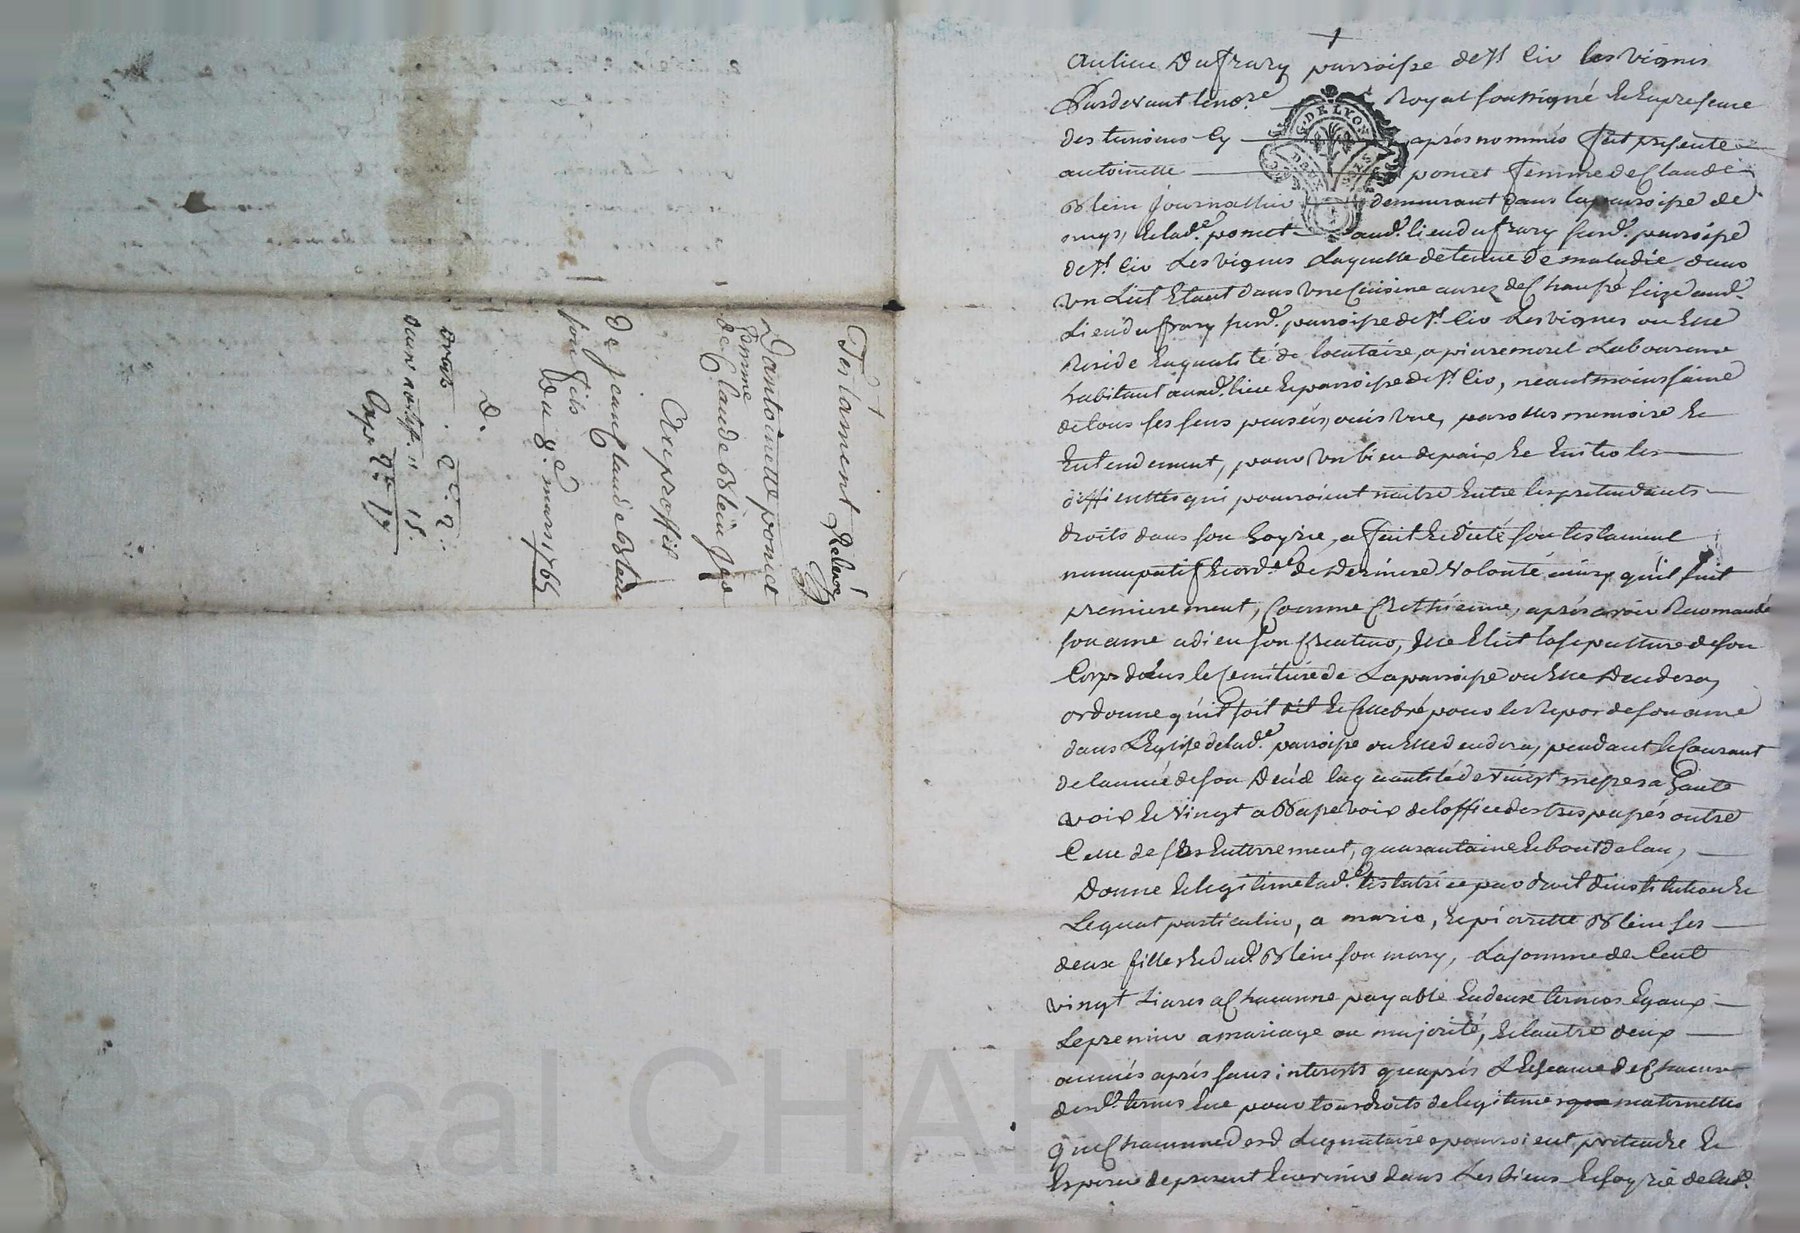 Testament Relevé
Dantoinette poncet
femme
de Claude Blein
Au proffit
De jean Claude Blein
son fils
Du 8e mars 1764
G. DE LYON
DEUX SOLS
au lieu Dufrary parroisse de st Cir les vignes
Pardevant le nore Royal soussigné Et En presence
des temoins Cy après nommés fut presente
antoinette poncet femme de Claude
Blein journallier demeurant dans la parroisse de
Et lade poncet aud. lieu du frary surd. parroisse
de st Cir Les vignes Laquelle detenue de maladie dans
un Lict Etant dans une Cuisine aurez de Chaussé size aud.
Lieu du frary surd. parroisse de st Cir Les vignes ou Elle
Reside En qualité de locataire, a pierre morel Laboureur
habitant aud. lieu Et parroisse de st Cir, neantmoins saine
de tous ses sens pensées, ouis vue, parolles memoire Et
Entendement, pour un bien de paix Et Eviter les
difficultés qui pourroient naitre Entre les pretendants
droits dans son hoyrie, a fait Et dicté son testament
nuncupatif Et ordce de Derniere volonté ainsy qu'il suit
premierement, Comme Chretienne, après avoir Recomandé
son ame a dieu son Createur, Elle Elit la sepulture de son
Corps dans le Cemitiere de La parroisse ou Elle Decedera,
ordonne qu'il soit dit Et Cellebré pour le Repos de son ame
dans L'Eglise de lade parroisse ou Elle decedera, pendant le Courant
de lannée de son Decés la quantité de vingt messes a haute
voix Et vingt a Basse voix de loffice des trespassés outre
Celle de ses Enterrement, quarantaine Et bout de lan,
Donne Et legitime lade testatrice par droit dinstitution Et
Legat particulier, a marie, Et pierrette Blein ses
deux filles Et dud. Blein son mary, La somme de Cent
vingt Livres a Chacunne payable En deux termes Egaux
Le premier a mariage ou majorité, Et lautre deux
années après sans interests qu'après L'Escheance de Chacun
desd. termes Et ce pour tous droits de legitime maternelle
que Chacunne desd Legataires pourroient pretendre Et
Esperer de present Et avenir dans Les biens Et hoyrie de lad.
Pascal CHAR